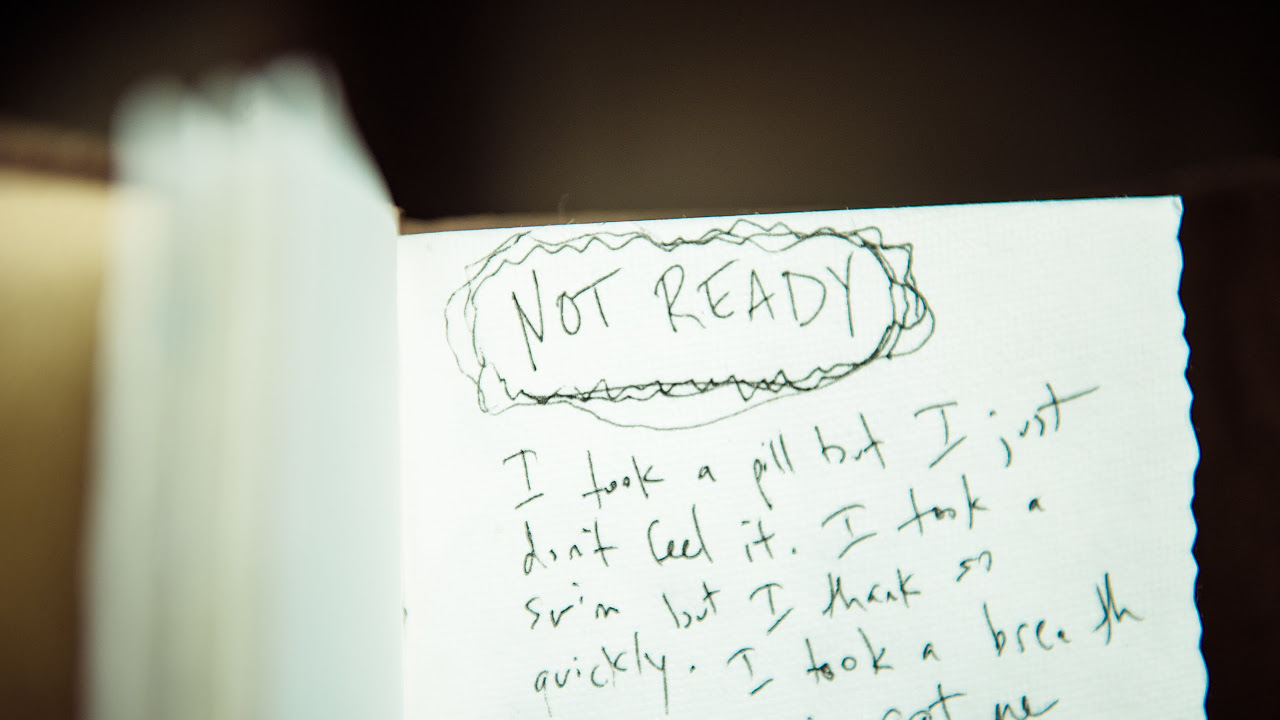 NOT READY
I took a pill but I just
don't feel it. I took a
swim but I thank so
quickly. I took a breath
got me